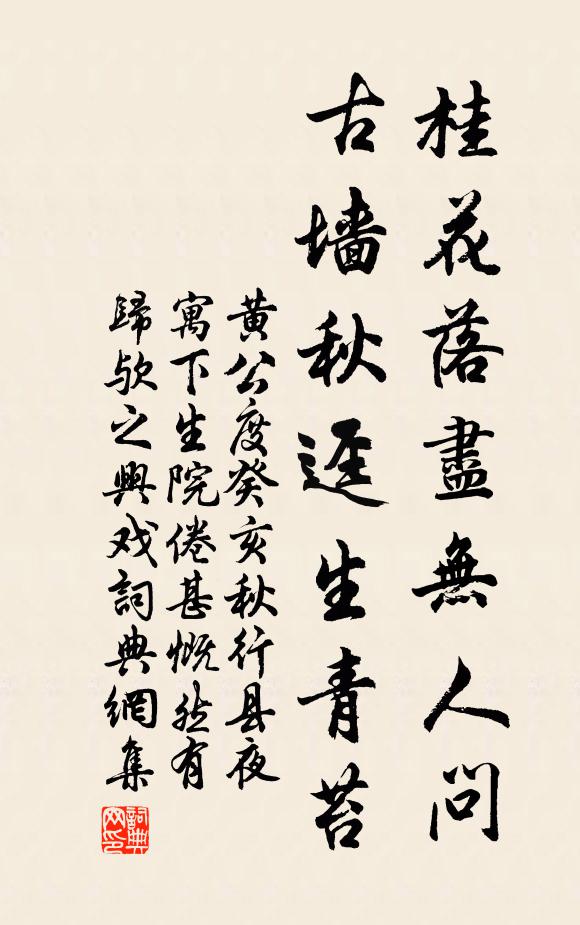 桂花落盡無人問
古墙秋逕生青苔
黄公度癸亥秋行县夜
寓下生院倦甚慨然有
歸欤之興戏詞典網集
詞典
网印